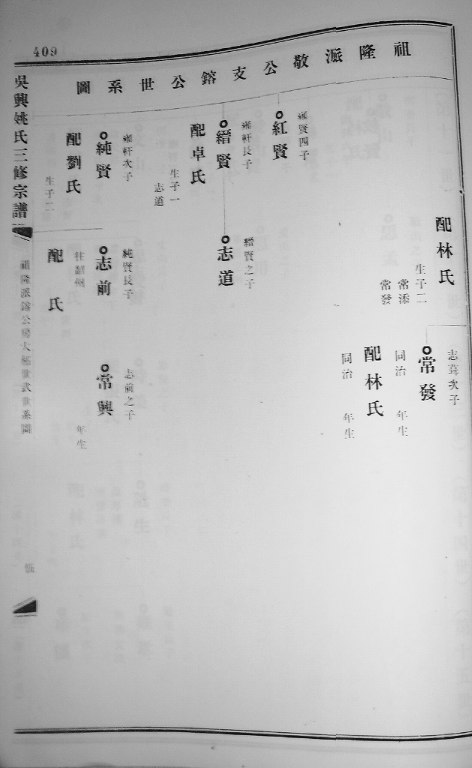 409
祖隆派敬公支鎔公世系圖
配林氏
生子二
常添
常發
志其次子
常發
同治 年生
配林氏
同治 年生
雍賢四子
紅賢
雍軒長子
縉賢
配卓氏
生子一
志道
縉賢之子
志道
雍軒次子
純賢
配劉氏
生子二
純賢長子
志前
配 氏
志前之子
常興
年生
吳興姚氏三修宗譜